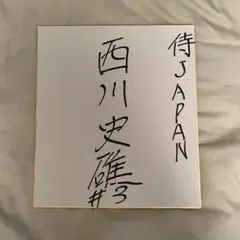 侍JAPAN
西川史礁
#3